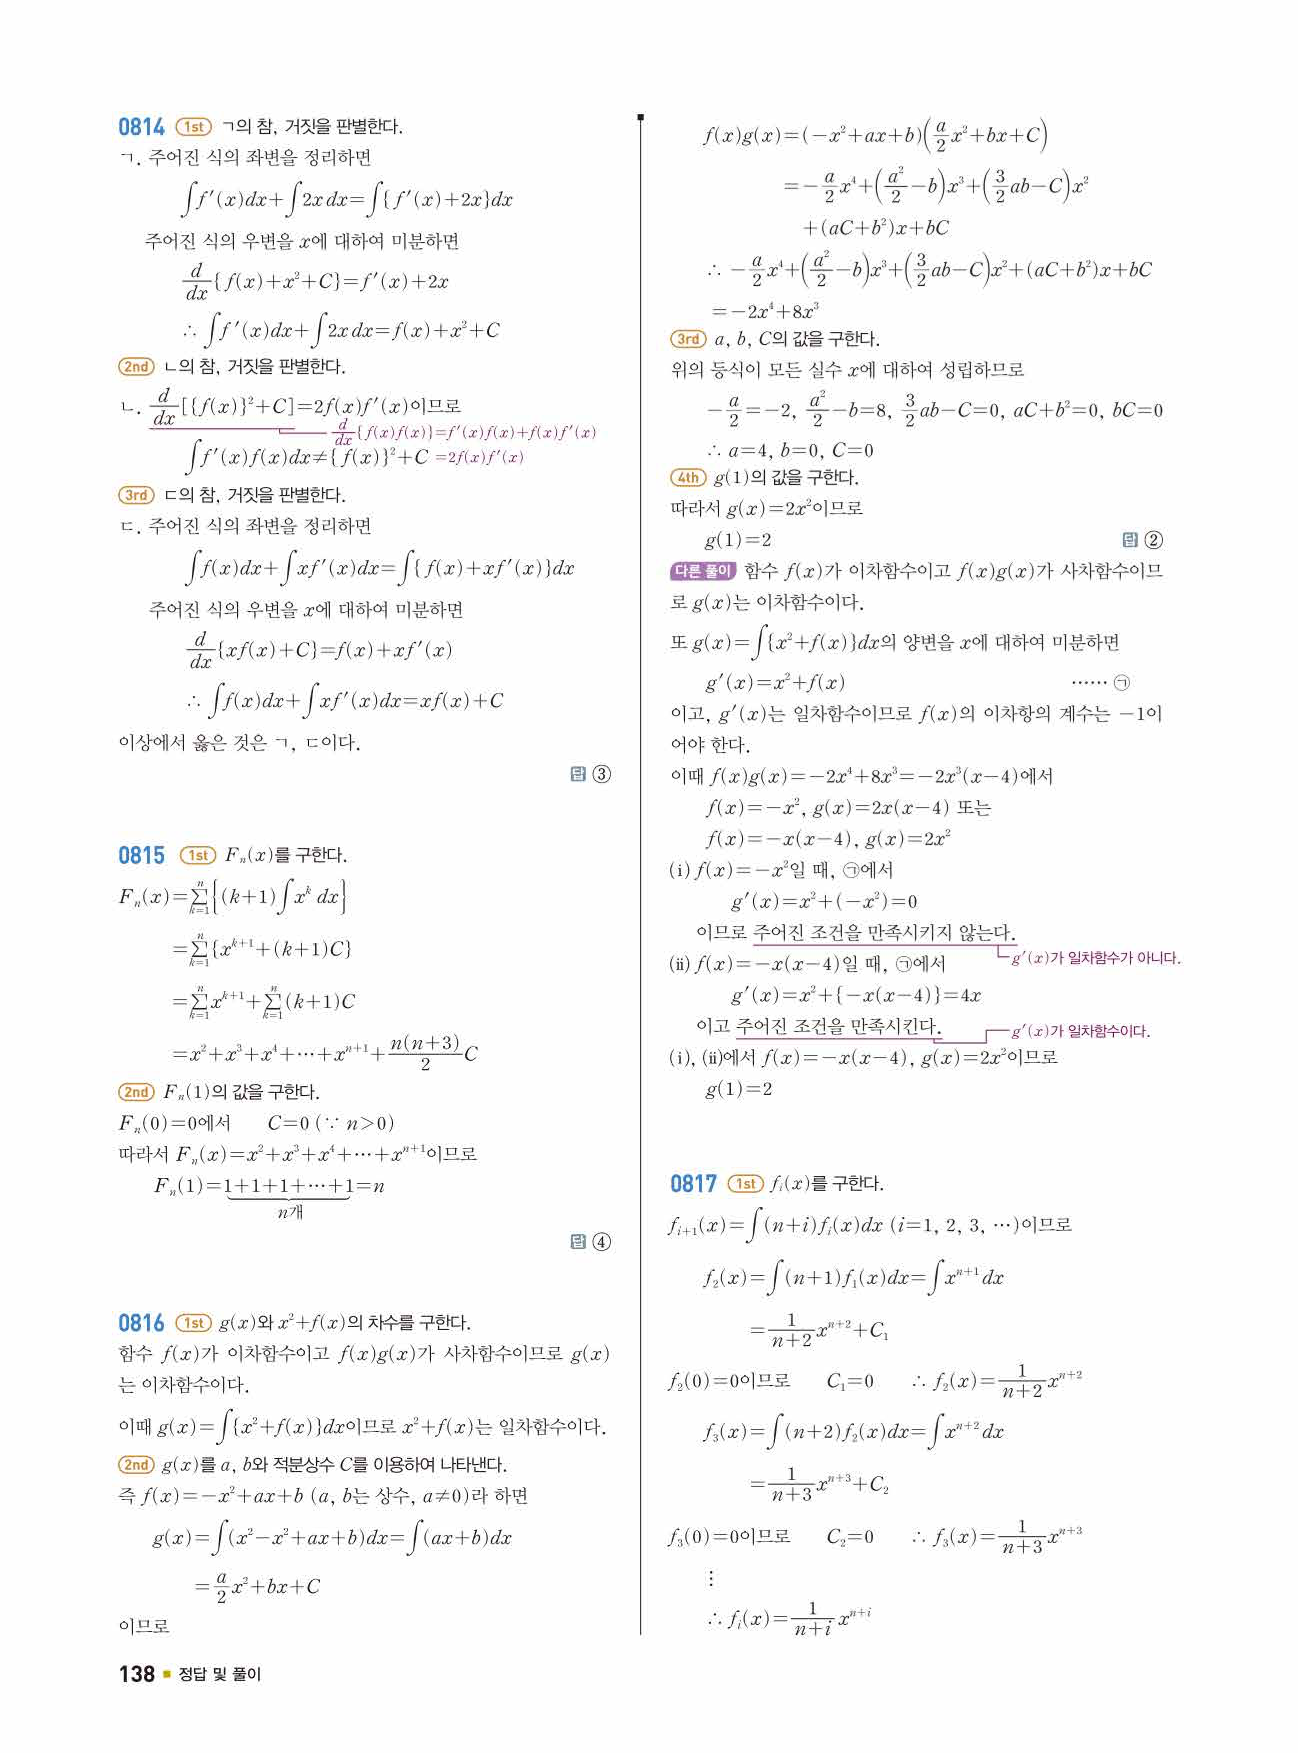 0814 1st ㄱ의 참, 거짓을 판별한다.
ㄱ. 주어진 식의 좌변을 정리하면
∫f′(x)dx+∫2xdx=∫{f′(x)+2x}dx
주어진 식의 우변을 x에 대하여 미분하면
d/dx{f(x)+x²+C}=f′(x)+2x
∴ ∫f′(x)dx+∫2xdx=f(x)+x²+C
2nd ㄴ의 참, 거짓을 판별한다.
ㄴ. d/dx[{f(x)}²+C]=2f(x)f′(x)이므로
d/dx{f(x)f(x)}=f′(x)f(x)+f(x)f′(x)
∫f′(x)f(x)dx≠{f(x)}²+C =2f(x)f′(x)
3rd ㄷ의 참, 거짓을 판별한다.
ㄷ. 주어진 식의 좌변을 정리하면
∫f(x)dx+∫xf′(x)dx=∫{f(x)+xf′(x)}dx
주어진 식의 우변을 x에 대하여 미분하면
d/dx{xf(x)+C}=f(x)+xf′(x)
∴ ∫f(x)dx+∫xf′(x)dx=xf(x)+C
이상에서 옳은 것은 ㄱ, ㄷ이다.
답 ③
0815 1st Fₙ(x)를 구한다.
Fₙ(x)=∑_{k=1}^{n}{(k+1)∫x^k dx}
=∑_{k=1}^{n}{x^{k+1}+(k+1)C}
=∑_{k=1}^{n}x^{k+1}+∑_{k=1}^{n}(k+1)C
=x²+x³+x⁴+⋯+x^{n+1}+n(n+3)/2 C
2nd Fₙ(1)의 값을 구한다.
Fₙ(0)=0에서 C=0 (∵ n>0)
따라서 Fₙ(x)=x²+x³+x⁴+⋯+x^{n+1}이므로
Fₙ(1)=1+1+1+⋯+1=n
n개
답 ④
0816 1st g(x)와 x²+f(x)의 차수를 구한다.
함수 f(x)가 이차함수이고 f(x)g(x)가 사차함수이므로 g(x)
는 이차함수이다.
이때 g(x)=∫{x²+f(x)}dx이므로 x²+f(x)는 일차함수이다.
2nd g(x)를 a, b와 적분상수 C를 이용하여 나타낸다.
즉 f(x)=-x²+ax+b (a, b는 상수, a≠0)라 하면
g(x)=∫(x²-x²+ax+b)dx=∫(ax+b)dx
=a/2 x²+bx+C
이므로
138 정답 및 풀이
f(x)g(x)=(-x²+ax+b)(a/2 x²+bx+C)
=-a/2 x⁴+(a²/2-b)x³+(3/2 ab-C)x²
+(aC+b²)x+bC
∴ -a/2 x⁴+(a²/2-b)x³+(3/2 ab-C)x²+(aC+b²)x+bC
=-2x⁴+8x³
3rd a, b, C의 값을 구한다.
위의 등식이 모든 실수 x에 대하여 성립하므로
-a/2=-2, a²/2-b=8, 3/2 ab-C=0, aC+b²=0, bC=0
∴ a=4, b=0, C=0
4th g(1)의 값을 구한다.
따라서 g(x)=2x²이므로
g(1)=2 답 ②
다른 풀이 함수 f(x)가 이차함수이고 f(x)g(x)가 사차함수이므
로 g(x)는 이차함수이다.
또 g(x)=∫{x²+f(x)}dx의 양변을 x에 대하여 미분하면
g′(x)=x²+f(x) ⋯⋯ ㉠
이고, g′(x)는 일차함수이므로 f(x)의 이차항의 계수는 -1이
어야 한다.
이때 f(x)g(x)=-2x⁴+8x³=-2x³(x-4)에서
f(x)=-x², g(x)=2x(x-4) 또는
f(x)=-x(x-4), g(x)=2x²
(ⅰ) f(x)=-x²일 때, ㉠에서
g′(x)=x²+(-x²)=0
이므로 주어진 조건을 만족시키지 않는다.
g′(x)가 일차함수가 아니다.
(ⅱ) f(x)=-x(x-4)일 때, ㉠에서
g′(x)=x²+{-x(x-4)}=4x
이고 주어진 조건을 만족시킨다. g′(x)가 일차함수이다.
(ⅰ), (ⅱ)에서 f(x)=-x(x-4), g(x)=2x²이므로
g(1)=2
0817 1st fᵢ(x)를 구한다.
f_{i+1}(x)=∫(n+i)fᵢ(x)dx (i=1, 2, 3, ⋯)이므로
f₂(x)=∫(n+1)f₁(x)dx=∫x^{n+1}dx
=1/(n+2) x^{n+2}+C₁
f₂(0)=0이므로 C₁=0 ∴ f₂(x)=1/(n+2) x^{n+2}
f₃(x)=∫(n+2)f₂(x)dx=∫x^{n+2}dx
=1/(n+3) x^{n+3}+C₂
f₃(0)=0이므로 C₂=0 ∴ f₃(x)=1/(n+3) x^{n+3}
⋮
∴ fᵢ(x)=1/(n+i) x^{n+i}